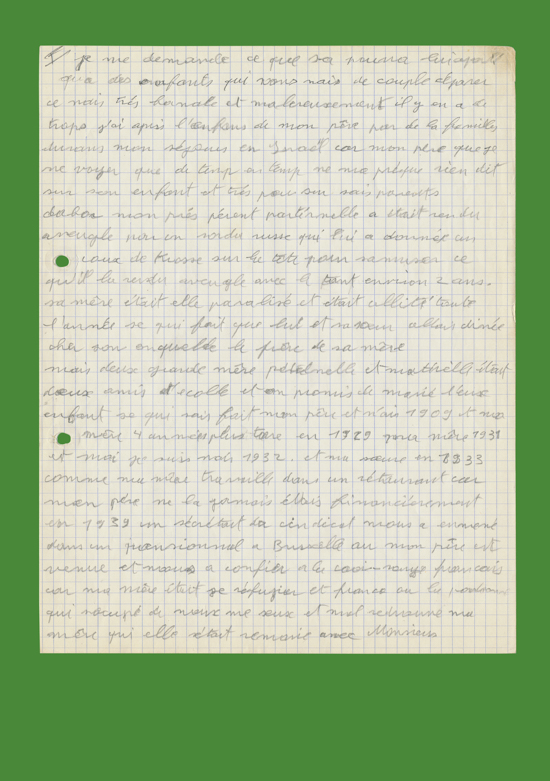 1/ je me demande ce que sa pourra
qu'a des enfants qui vous nais de couple séparer
ce nais très bornale et malereusement il y en a de
trops j'ai apris l'enfans de mon père par de la familles
durans mon séjours en Israël car mon père que je
ne voyer que de temp en temp ne ma présque rien dit
sur son enfant et très peu sur sais parents
dabor mon prés pèrent partérnelle a était rendu
aveugle par un sordu russe qui l'ui a donnée un
coux de brosse sur la tête pour samuser ce
qui l'la rendu aveugle avec la font environ 2 ans.
sa mère était elle paralisé et était allité toute
l'année se qui fait que lui et sa sœur allais dinée
cher son onquelle le frère de sa mère
mais deux grande mère patelnelle et mathèlle étais
deux amis d'ecolle et on promis de marié leux
enfant se qui sais fait mon père et nais 1909 et ma
mère 4 années plus tare en 1929 ma mère 1931
et moi je suis nais 1932. et ma sœure en 1933
comme ma mère travaille dans un réstaurant car
mon père ne la jamais étais financièrement
en 1939 un secrétait da cindécal nous a enmené
dans un pensionnal a Bruxelle ou mon père est
venue et nous a confier a la croi-rouge francais
car ma mère était se réfugier et france ou la
qui rocupé de nous me seux et mal retrouvé ma
mère qui elle sétait remarié avec Monsieur